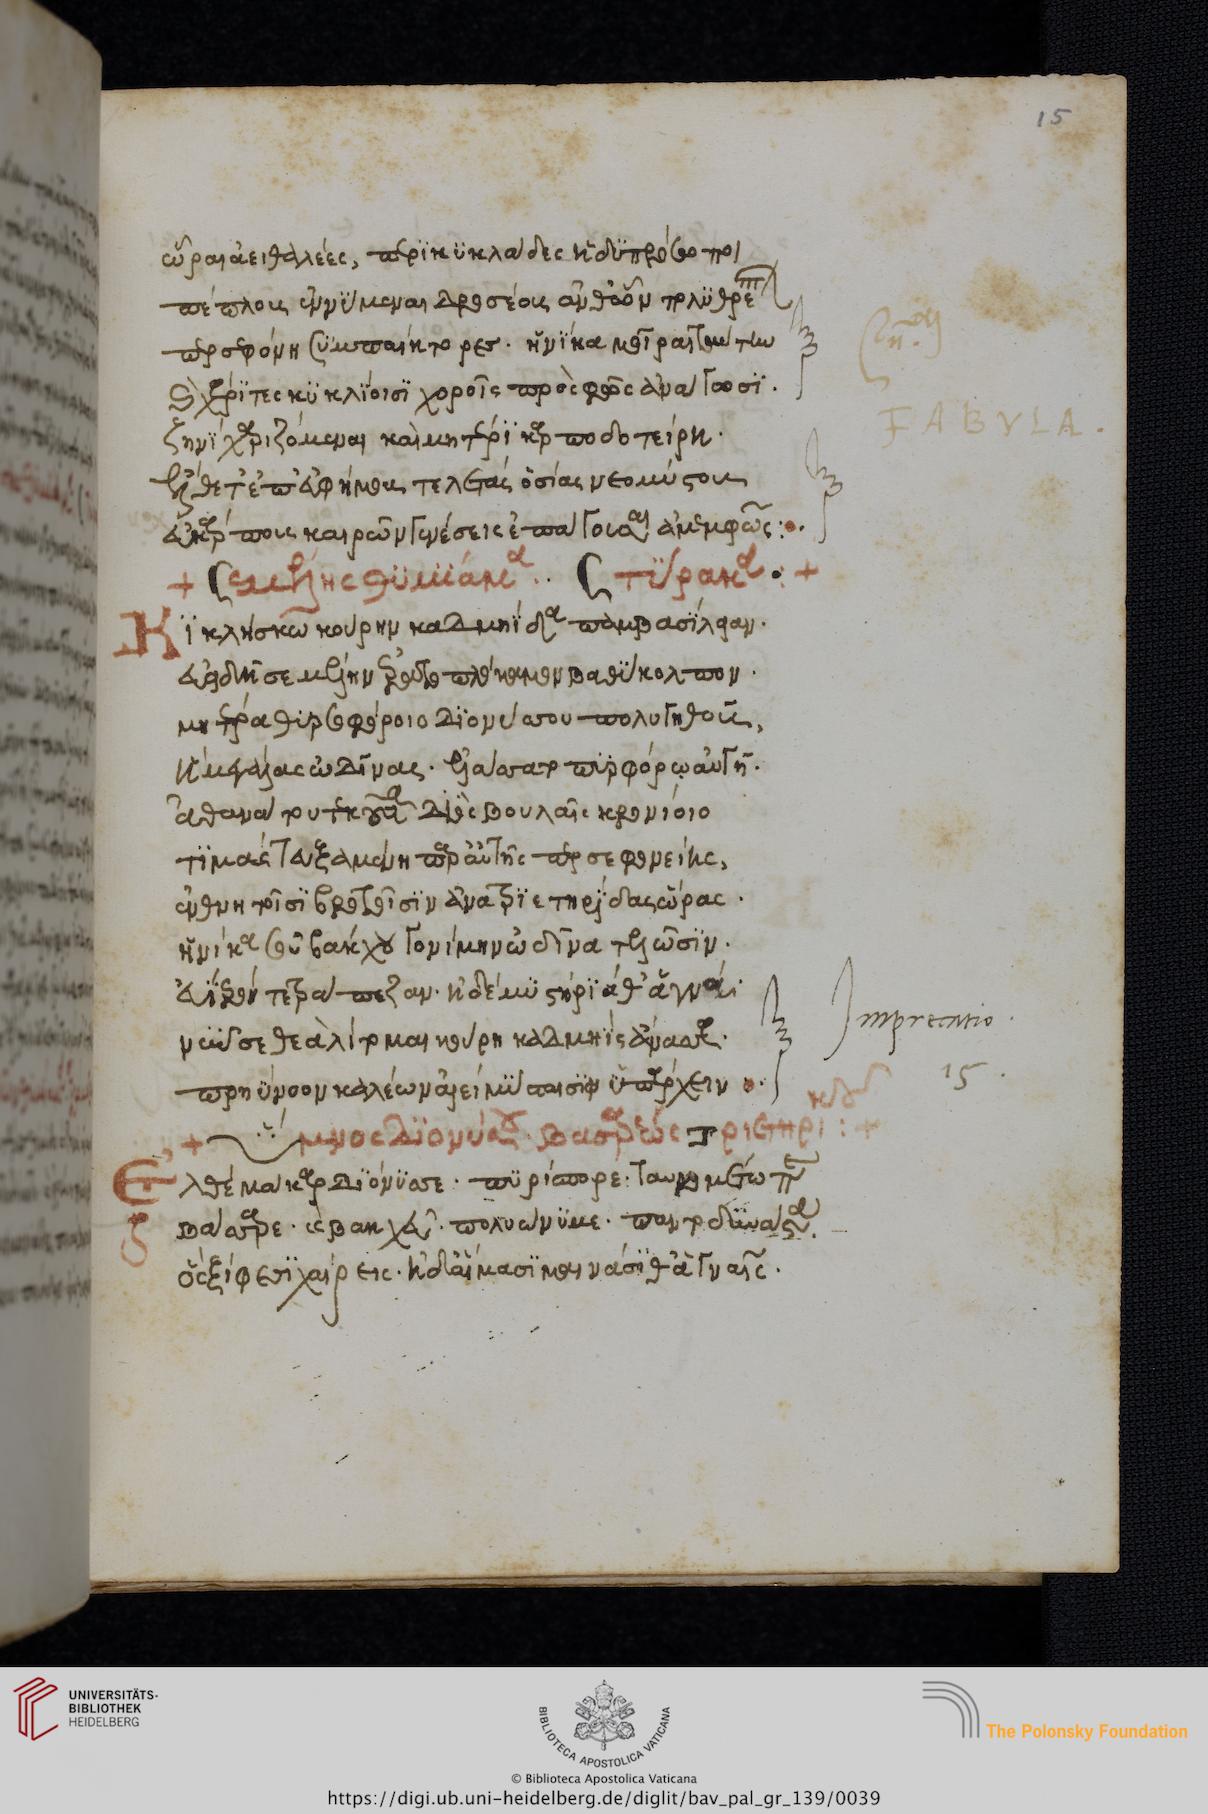 15
ὧραι ἀειθαλέες, περικυκλάδες ἡδυπρόσωποι
πέπλους ἑννύμεναι δροσεροὺς ἀνθῶν πολυθρέπτων
περσεφόνη συμπαίκτορες. ἡνίκα μοῖραι
καὶ χάριτες κυκλίοισι χοροῖς πρὸς φῶς ἀνάγωσι.
ζηνὶ χαριζόμεναι καὶ μητέρι καρποδοτείρη.
ἔλθετ' ἐπ' εὐφήμους τελετὰς ὁσίας νεομύστοις
εὐκάρπους καιρῶν γενέσεις ἐπάγουσαι ἀμεμφῶς:
+ σεμέλης θυμίαμα. στύρακα: +
Κικλήσκω κούρην καδμηίδα παμβασίλειαν.
εὐειδῆ σεμέλην ἐρατοπλόκαμον βαθύκολπον.
μητέρα θυρσοφόροιο διονύσου πολυγηθοῦς,
ἣ μεγάλας ὠδῖνας ἐλάσσατο πυρφόρῳ αὐγῆ.
ἀθανάτου τε διὸς βουλαῖς κρονίοιο
τιμὰς τευξαμένη παρ' αὐτῆς περσεφονείης,
ἐν θνητοῖσι βροτοῖσιν ἀνὰ τριετηρίδας ὥρας.
ἡνίκα σοῦ βάκχου γονίμην ὠδῖνα τελῶσιν.
εὐίερόν τε τράπεζαν. ἠδὲ μυστήριά θ' ἁγνά.
νῦν σε θεὰ λίτομαι κούρη καδμηὶς ἄνασσα.
πρηΰνοον καλέων αἰεὶ μύσταισιν ὑπάρχειν.
+ ὕμνος διονύσου βασσαρέως τριετηρι: +
Ἐλθὲ μάκαρ διόνυσε. πυρίσπορε. ταυρομέτωπε
βάσσαρε. καὶ βακχεῦ. πολυώνυμε. παντοδυνάστα.
ὃς ξίφεσι χαίρεις. ἠδ' αἵματι μαινάσι θ' ἁγναῖς.
FABVLA.
Imprecatio.
15.
UNIVERSITÄTS-
BIBLIOTHEK
HEIDELBERG
BIBLIOTECA APOSTOLICA VATICANA
© Biblioteca Apostolica Vaticana
The Polonsky Foundation
https://digi.ub.uni-heidelberg.de/diglit/bav_pal_gr_139/0039